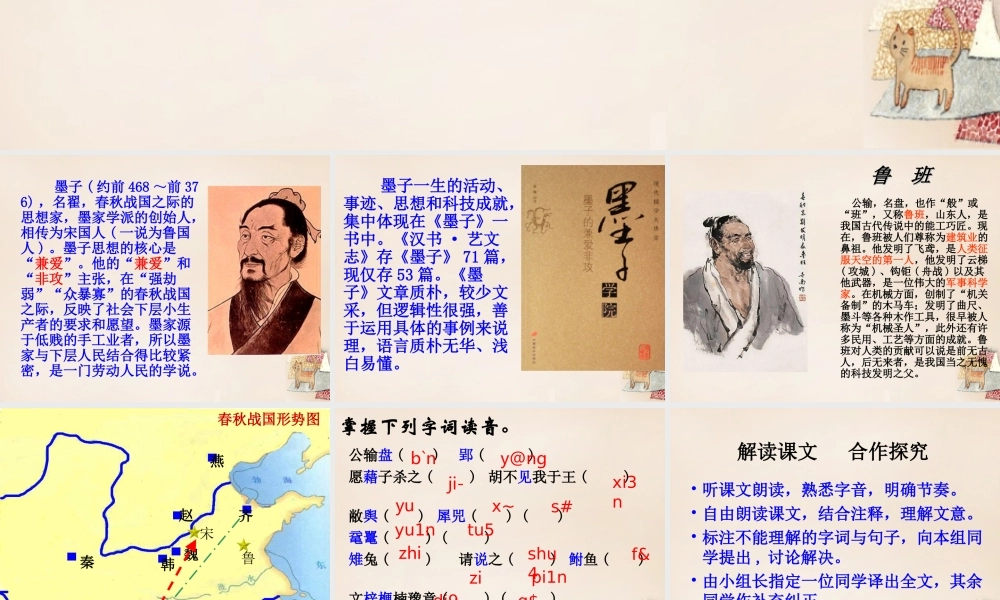 墨子(约前468～前37
6)，名翟，春秋战国之际的
思想家，墨家学派的创始人，
相传为宋国人(一说为鲁国
人)。墨子思想的核心是
“兼爱”。他的“兼爱”和
“非攻”主张，在“强劫
弱”“众暴寡”的春秋战国
之际，反映了社会下层小生
产者的要求和愿望。墨家源
于低贱的手工业者，所以墨
家与下层人民结合得比较紧
密，是一门劳动人民的学说。
墨子一生的活动、
事迹、思想和科技成就，
集中体现在《墨子》一
书中。《汉书·艺文
志》存《墨子》71篇，
现仅存53篇。《墨
子》文章质朴，较少文
采，但逻辑性很强，善
于运用具体的事例来说
理，语言质朴无华、浅
白易懂。
墨子
学院
墨子的兼爱非攻
鲁 班
公输，名盘，也作“般”或
“班”，又称鲁班，山东人，是
我国古代传说中的能工巧匠。现
在，鲁班被人们尊称为建筑业的
鼻祖。他发明了飞鸢，是人类征
服天空的第一人，他发明了云梯
(攻城)、钩钜(舟战)以及其
他武器，是一位伟大的军事科学
家。在机械方面，创制了“机关
备制”的木马车；发明了曲尺、
墨斗等各种木作工具，很早被人
称为“机械圣人”，此外还有许
多民用、工艺等方面的成就。鲁
班对人类的贡献可以说是前无古
人，后无来者，是我国当之无愧
的科技发明之父。
春秋战国形势图
燕
渤 海
赵
齐
宋
鲁
秦
韩
魏
东
掌握下列字词读音。
公输盘( b`n ) 郢( y@ng )
愿藉子杀之( ji- ) 胡不见我于王( xi3n )
敝舆( yu ) 犀兕( x~ )( s# )
鼋鼍( yu1n )( tu5 )
雉兔( zhi ) 请说之( shu4 ) 鲋鱼( f& )
zi pi1n
文梓楩楠豫章( )( )
解读课文 合作探究
• 听课文朗读，熟悉字音，明确节奏。
• 自由朗读课文，结合注释，理解文意。
• 标注不能理解的字词与句子，向本组同
学提出，讨论解决。
• 由小组长指定一位同学译出全文，其余
同学作补充纠正。